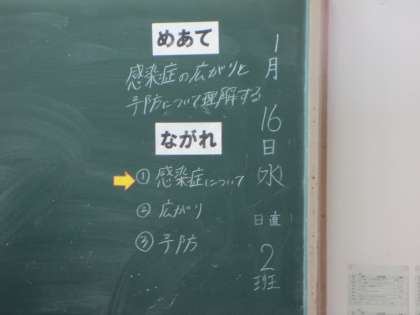 1月16日水
日直 2班
めあて
感染症の広がりと
予防について理解する
ながれ
①感染症について
②広がり
③予防